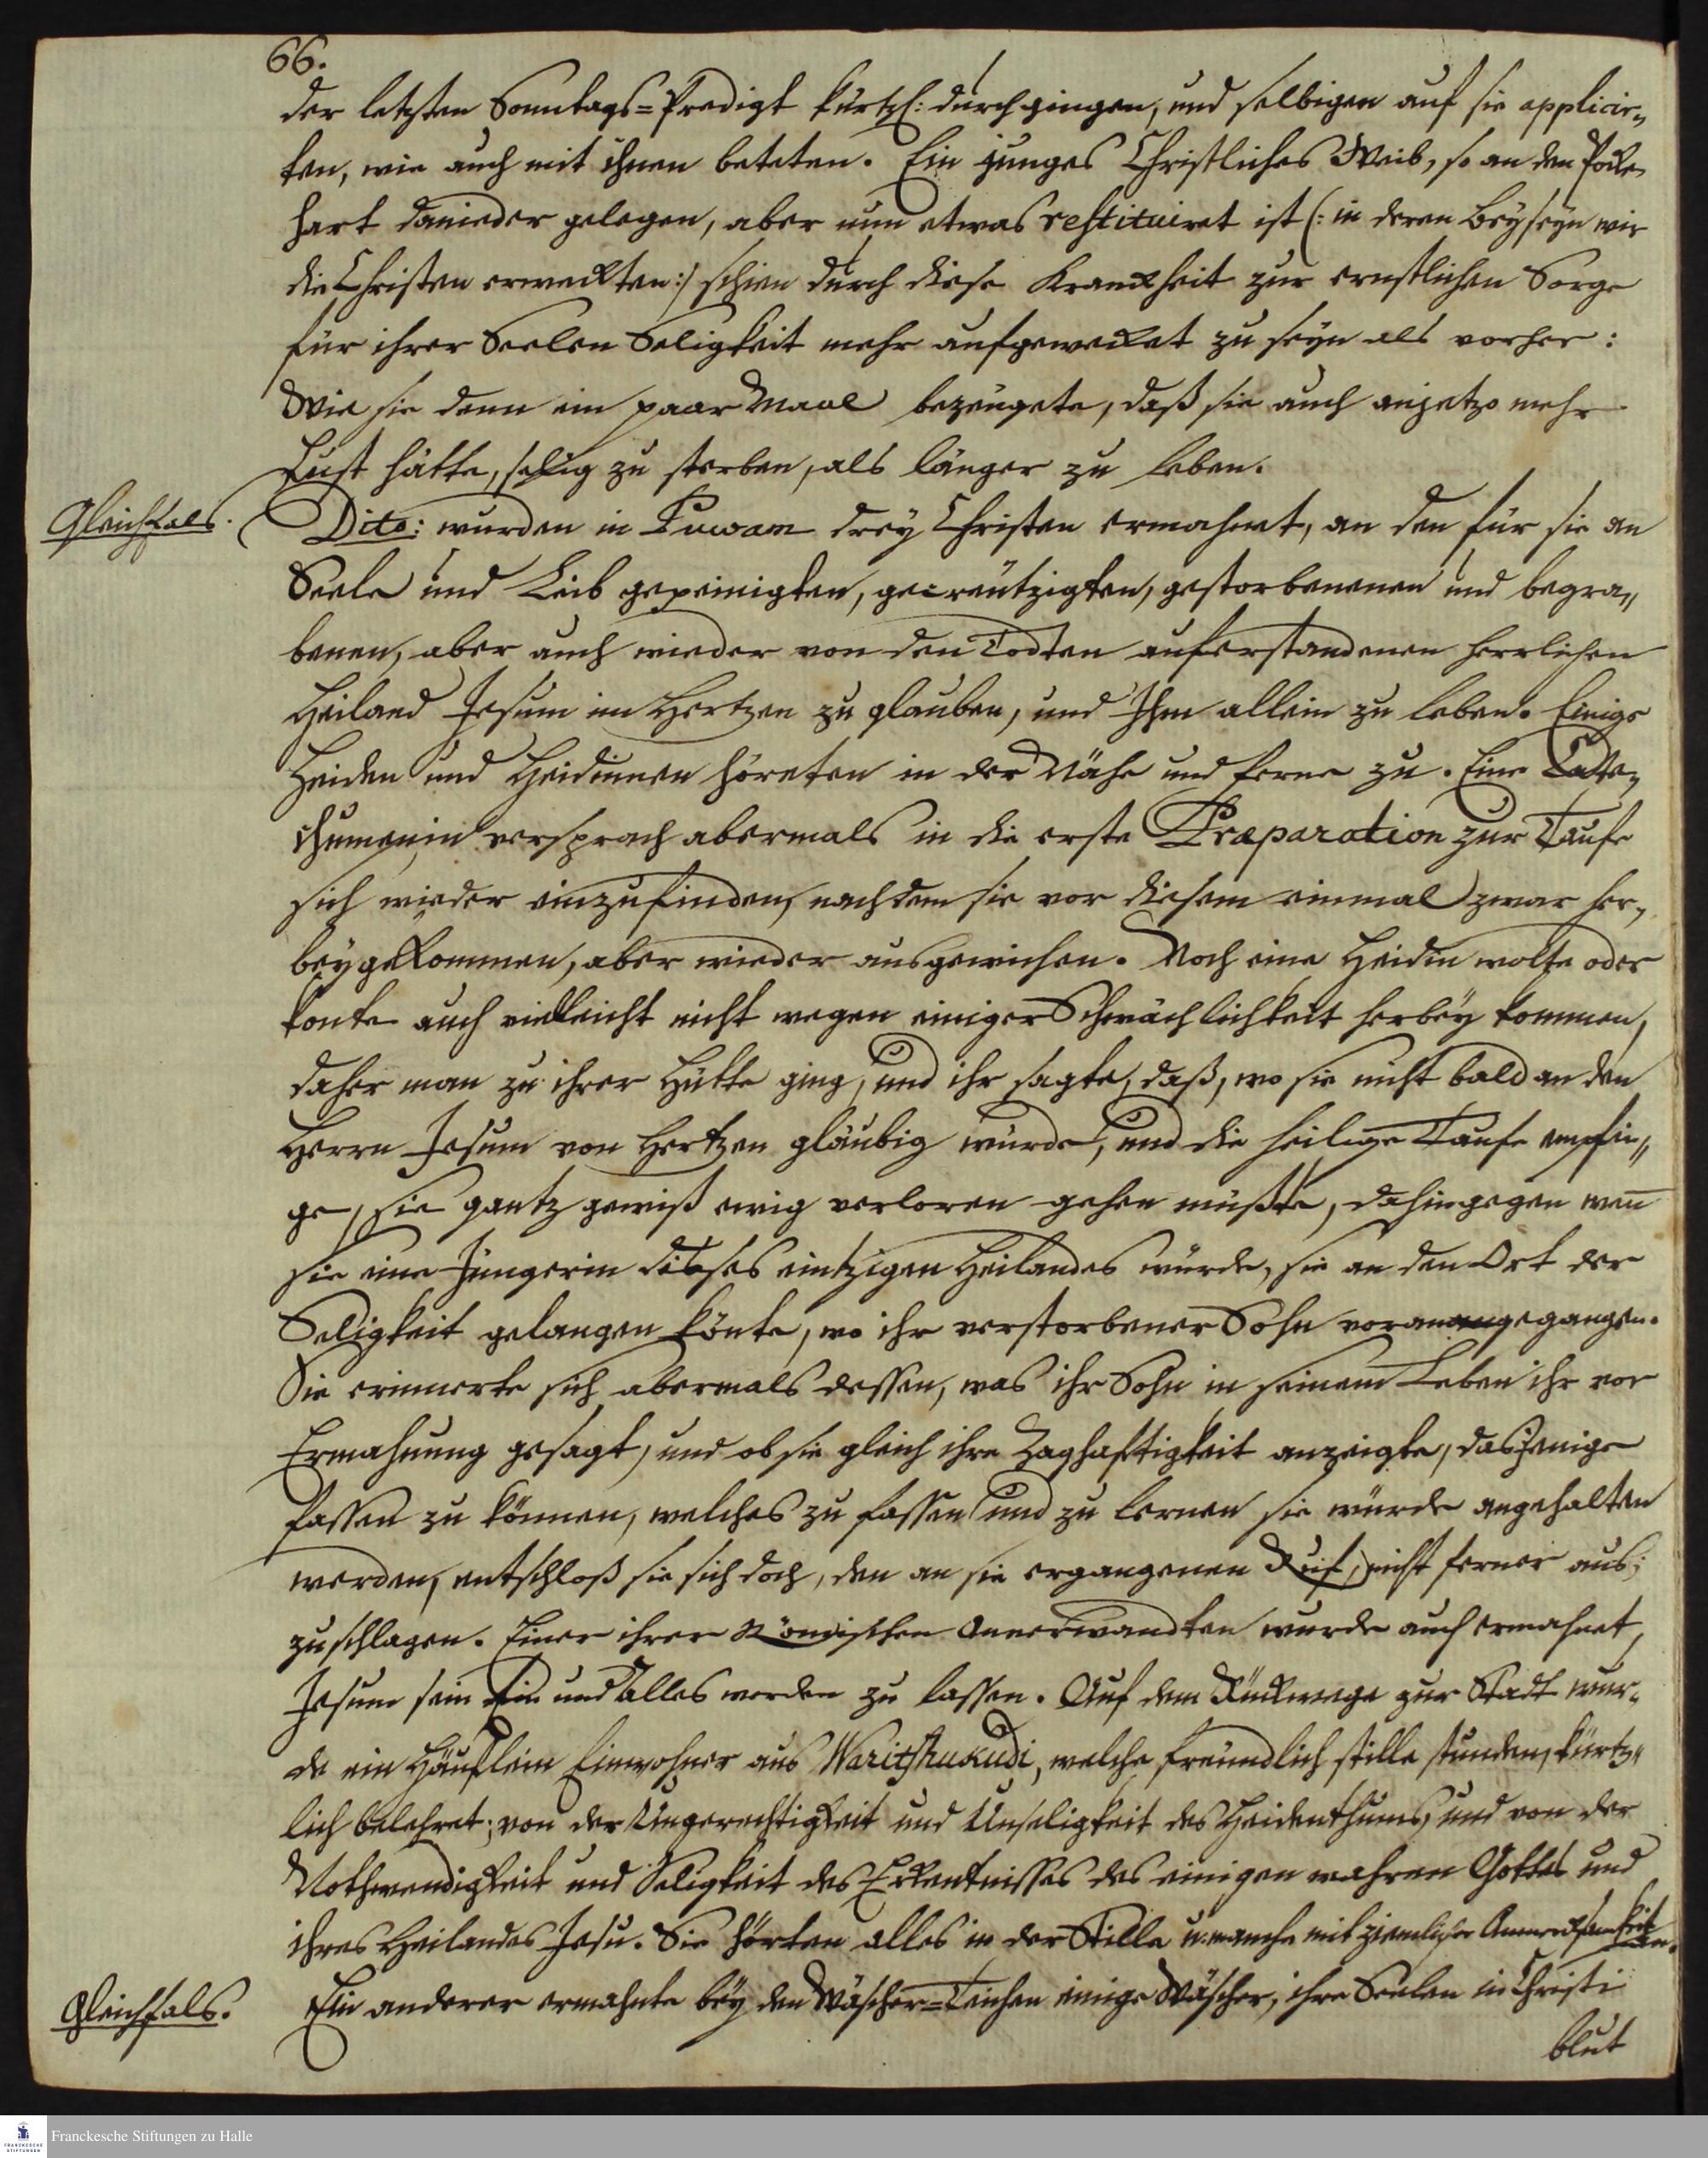 66.
der letzten Sonntags=Predigt kurtzl: durchgingen, und selbigen auf sie applicir„
ten, wie auch mit ihnen beteten. Ein junges Christliches Weib, so an den Pocken
hart danieder gelegen, aber nun etwas restituiret ist (: in deren Beyseyn wir
die Christen erweckten:) schien durch diese Kranckheit zur ernstlichen Sorge
für ihrer Seelen Seligkeit mehr aufgewecket zu seyn als vorher:
Wie sie denn ein paar Maal bezeugete, daß sie auch anjetzo mehr
Lust hätte, selig zu sterben, als länger zu leben.
Gleichfals.
Dito: wurden in Puwam drey Christen ermahnet, an den für sie an
Seele und Leib gepeinigten, gecreutzigten, gestorbenenen und begra„
benen, aber auch wieder von den Todten auferstandenen herrlichen
Heiland Jesum im Hertzen zu glauben, und Ihm allein zu leben. Einige
Heiden und Heidinnen höreten in der Nähe und ferne zu. Eine Cate„
chumenin versprach abermals in die erste Præparation zur Taufe
sich wieder einzufinden, nachdem sie vor diesem einmal zwar her„
beygekommen, aber wieder ausgewichen. Noch eine Heidin wolte oder
konte auch vielleicht nicht wegen einiger Schwächlichkeit herbey kommen,
daher man zu ihrer Hütte ging, und ihr sagte, daß, wo sie nicht bald an den
Herrn Jesum von Hertzen gläubig würde, und die heilige Taufe empfin„
ge, sie gantz gewiß ewig verloren gehen müßte, dahingegen wen̅
sie eine Jüngerin dieses eintzigen Heilandes würde, sie an den Ort der
Seligkeit gelangen könte, wo ihr verstorbener Sohn vorangegangen.
Sie erinnerte sich abermals dessen, was ihr Sohn in seinem Leben ihr vor
Ermahnung gesagt, und ob sie gleich ihre Zaghaftigkeit anzeigte, dasjenige
fassen zu können, welches zu fassen und zu lernen sie würde angehalten
werden, entschloß sie sich doch, den an sie ergangenen Ruf, nicht ferner aus„
zuschlagen. Einer ihrer Römischen Anverwandten wurde auch ermahnet,
Jesum sein Ein und Alles werden zu lassen. Auf dem Rückwege zur Stadt wur„
de ein Häuflein Einwohner aus Waritshukudi, welche freundlich stille stunden, kürtz„
lich belehret; von der Ungerechtigkeit und Unseligkeit des Heidenthums, und von der
Nothwendigkeit und Seligkeit des Erkentnisses des einigen wahren Gottes und
ihres Heilandes Jesu. Sie hörten alles in der Stille u. manche mit ziemlicher Aufmercksamkeit an.
Gleichfals.
Ein anderer ermahnte bey den Wäscher=Teichen einige Wäscher, ihre Seelen in Christi
blut
Franckesche Stiftungen zu Halle